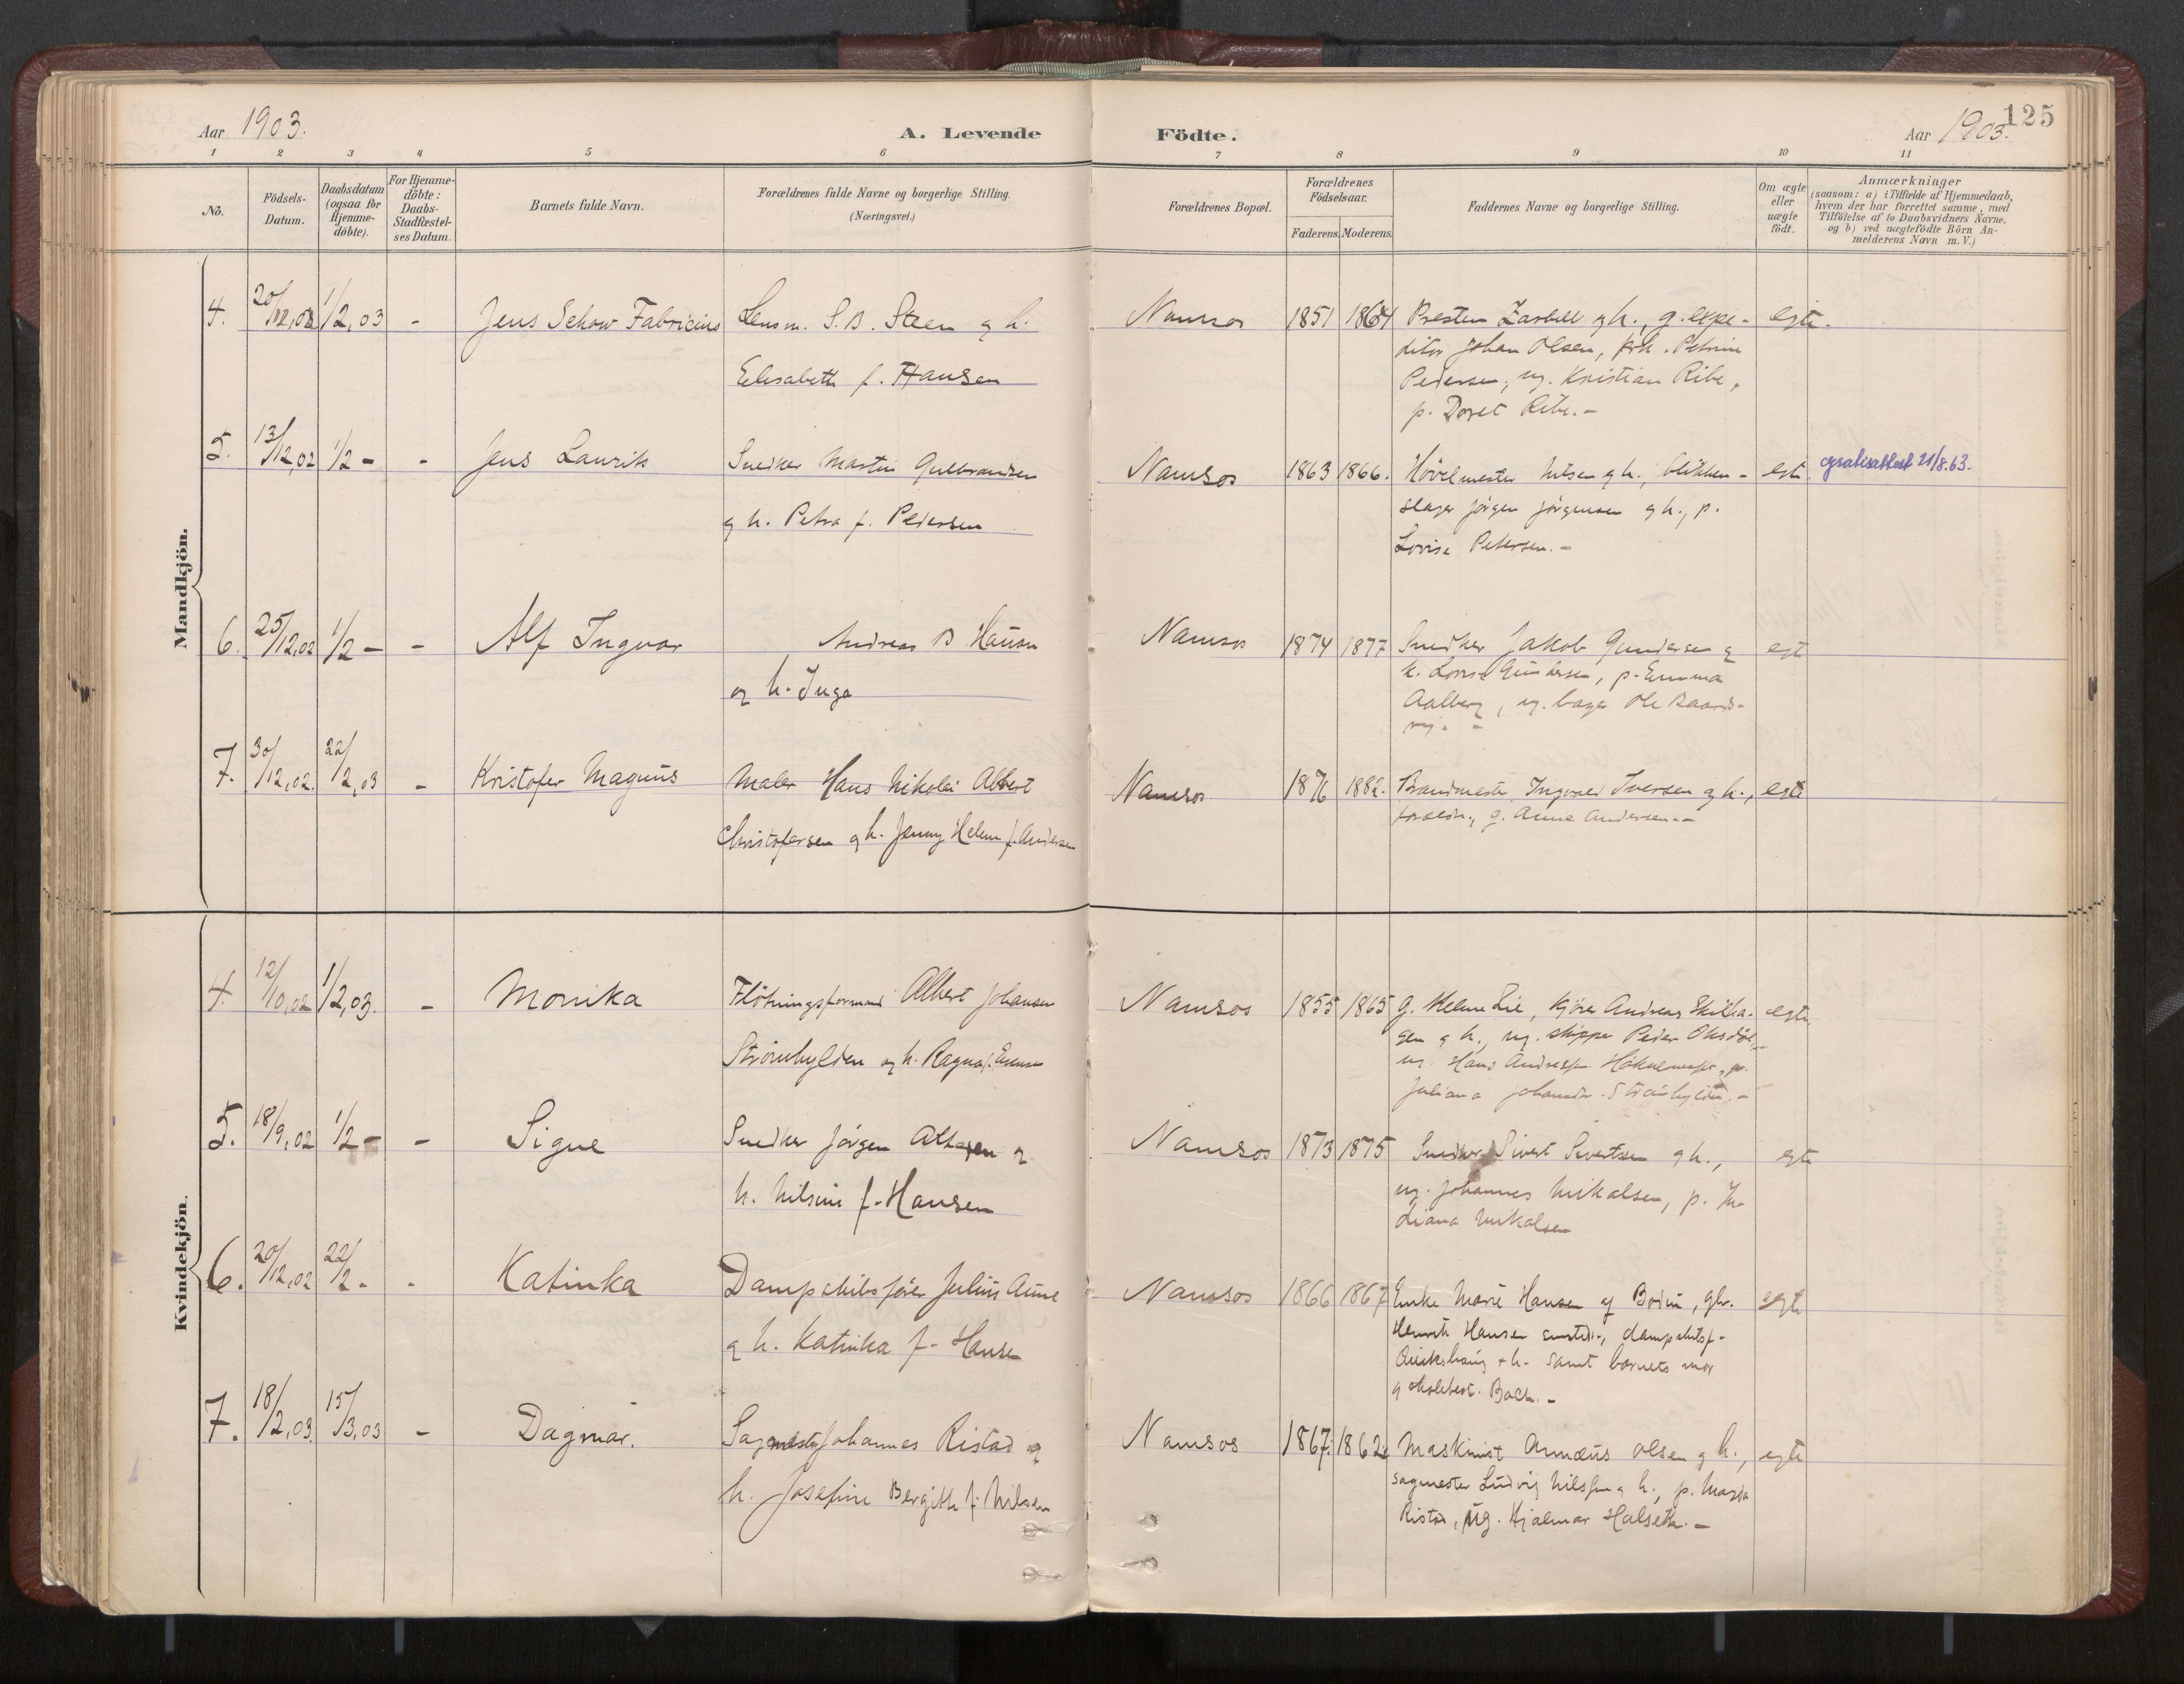 125
Aar 1903.
A. Levende
Födte.
Aar 1903.
1 2 3 4 5 6 7 8 9 10 11
No.
Födsels-
Datum.
Daabsdatum
(ogsaa for
Hjemme-
döbte).
For Hjemme-
döbte:
Daabs-
Stadfæstel-
ses Datum.
Barnets fulde Navn.
Forældrenes fulde Navne og borgerlige Stilling.
(Næringsvei.)
Forældrenes Bopæl.
Forældrenes
Födselsaar.
Faderens. Moderens.
Faddernes Navne og borgerlige Stilling.
Om ægte
eller
uægte
födt.
Anmærkninger
(saasom: a) i Tilfælde af Hjemmedaab,
hvem der har forrettet samme, med
Tilföielse af to Daabsvidners Navne.
og b) ved uægtefödte Börn An-
melderens Navn m. V.)
Mandkjön.
4. 20/12,02 1/2,03 - Jens Schow Fabricius Lensm. S. B. Steen og h.
Elisabeth f. Hansen
Namsos 1851 1864 Presten Zarbell og h., g. expe- egte.
ditør Johan Olsen, Petrine
Pedersen, ug. Kristian Ribe,
p. Doret Ribe.-
5. 13/12,02 1/2 - - Jens Laurits Snedker Martin Gulbrandsen
og h. Petra f. Pedersen
Namsos 1863 1866. Høvelmester Nilsen og h., blikken- egte. gratisattest 21/8.63.
slager Jörgen Jörgensen og h., p.
Lovise Petersen.-
6. 25/12,02 1/2 - - Alf Ingvar Andreas B. Hanson
og h. Inga
Namsos 1874 1877 Snedker Jakob Gundersen og egte
h. Lovise Gundersen, p. Emma
Aalberg, ug. bager Ole Baards-
vig. -
7. 30/12,02. 22/2,03 - Kristofer Magnus Maler Hans Nikolai Albert
Christofersen og h. Jenny Helene f. Andersen
Namsos 1876 1882. Brandmester Ingvald Iversen og h., egte
foreldr., g. Anne Andersen.-
Kvindekjön.
4. 12/10,02 1/2,03. - Monika Flötningsformand Albert Johansen
Strömhylden og h. Ragna f. Evensen
Namsos 1855 1865 g. Helene Lie, kjörer Andreas Skilha- egte.
gen og h., ug. skipper Peder Oksdöl,
ug. Hans Andreas
Juliana Johansdr. Strömhylden,-
5. 18/9,02 1/2 - - Signe Snedker Jörgen og
h. Nilsine f. Hansen
Namsos 1873 1875 Snedker Sivert Sivertsen og h., egte
ug. Johannes Mikalsen, p. Ju-
liana Mikalsen
6. 20/12,02 22/2 - - Katinka Dampskibsförer Julius Aune
og h. Katinka f. Hansen
Namsos 1866 1867 Enke Marie Hansen af Bodin, gbr. egte
Henrik Hansen dampskibsf.
Quikshaug + h. samt barnets mor
og skolebest. Bach.-
7. 18/2,03. 15/3,03 - Dagmar. Sagmester Johannes Ristad og
h. Josefine Bergitte f. Nilsen
Namsos 1867. 1862. Maskinist Annæus Olsen og h., egte
sagmester Ludvig Nilssen og h., p. Magda
Ristad, ug. Hjalmar Halseth.-